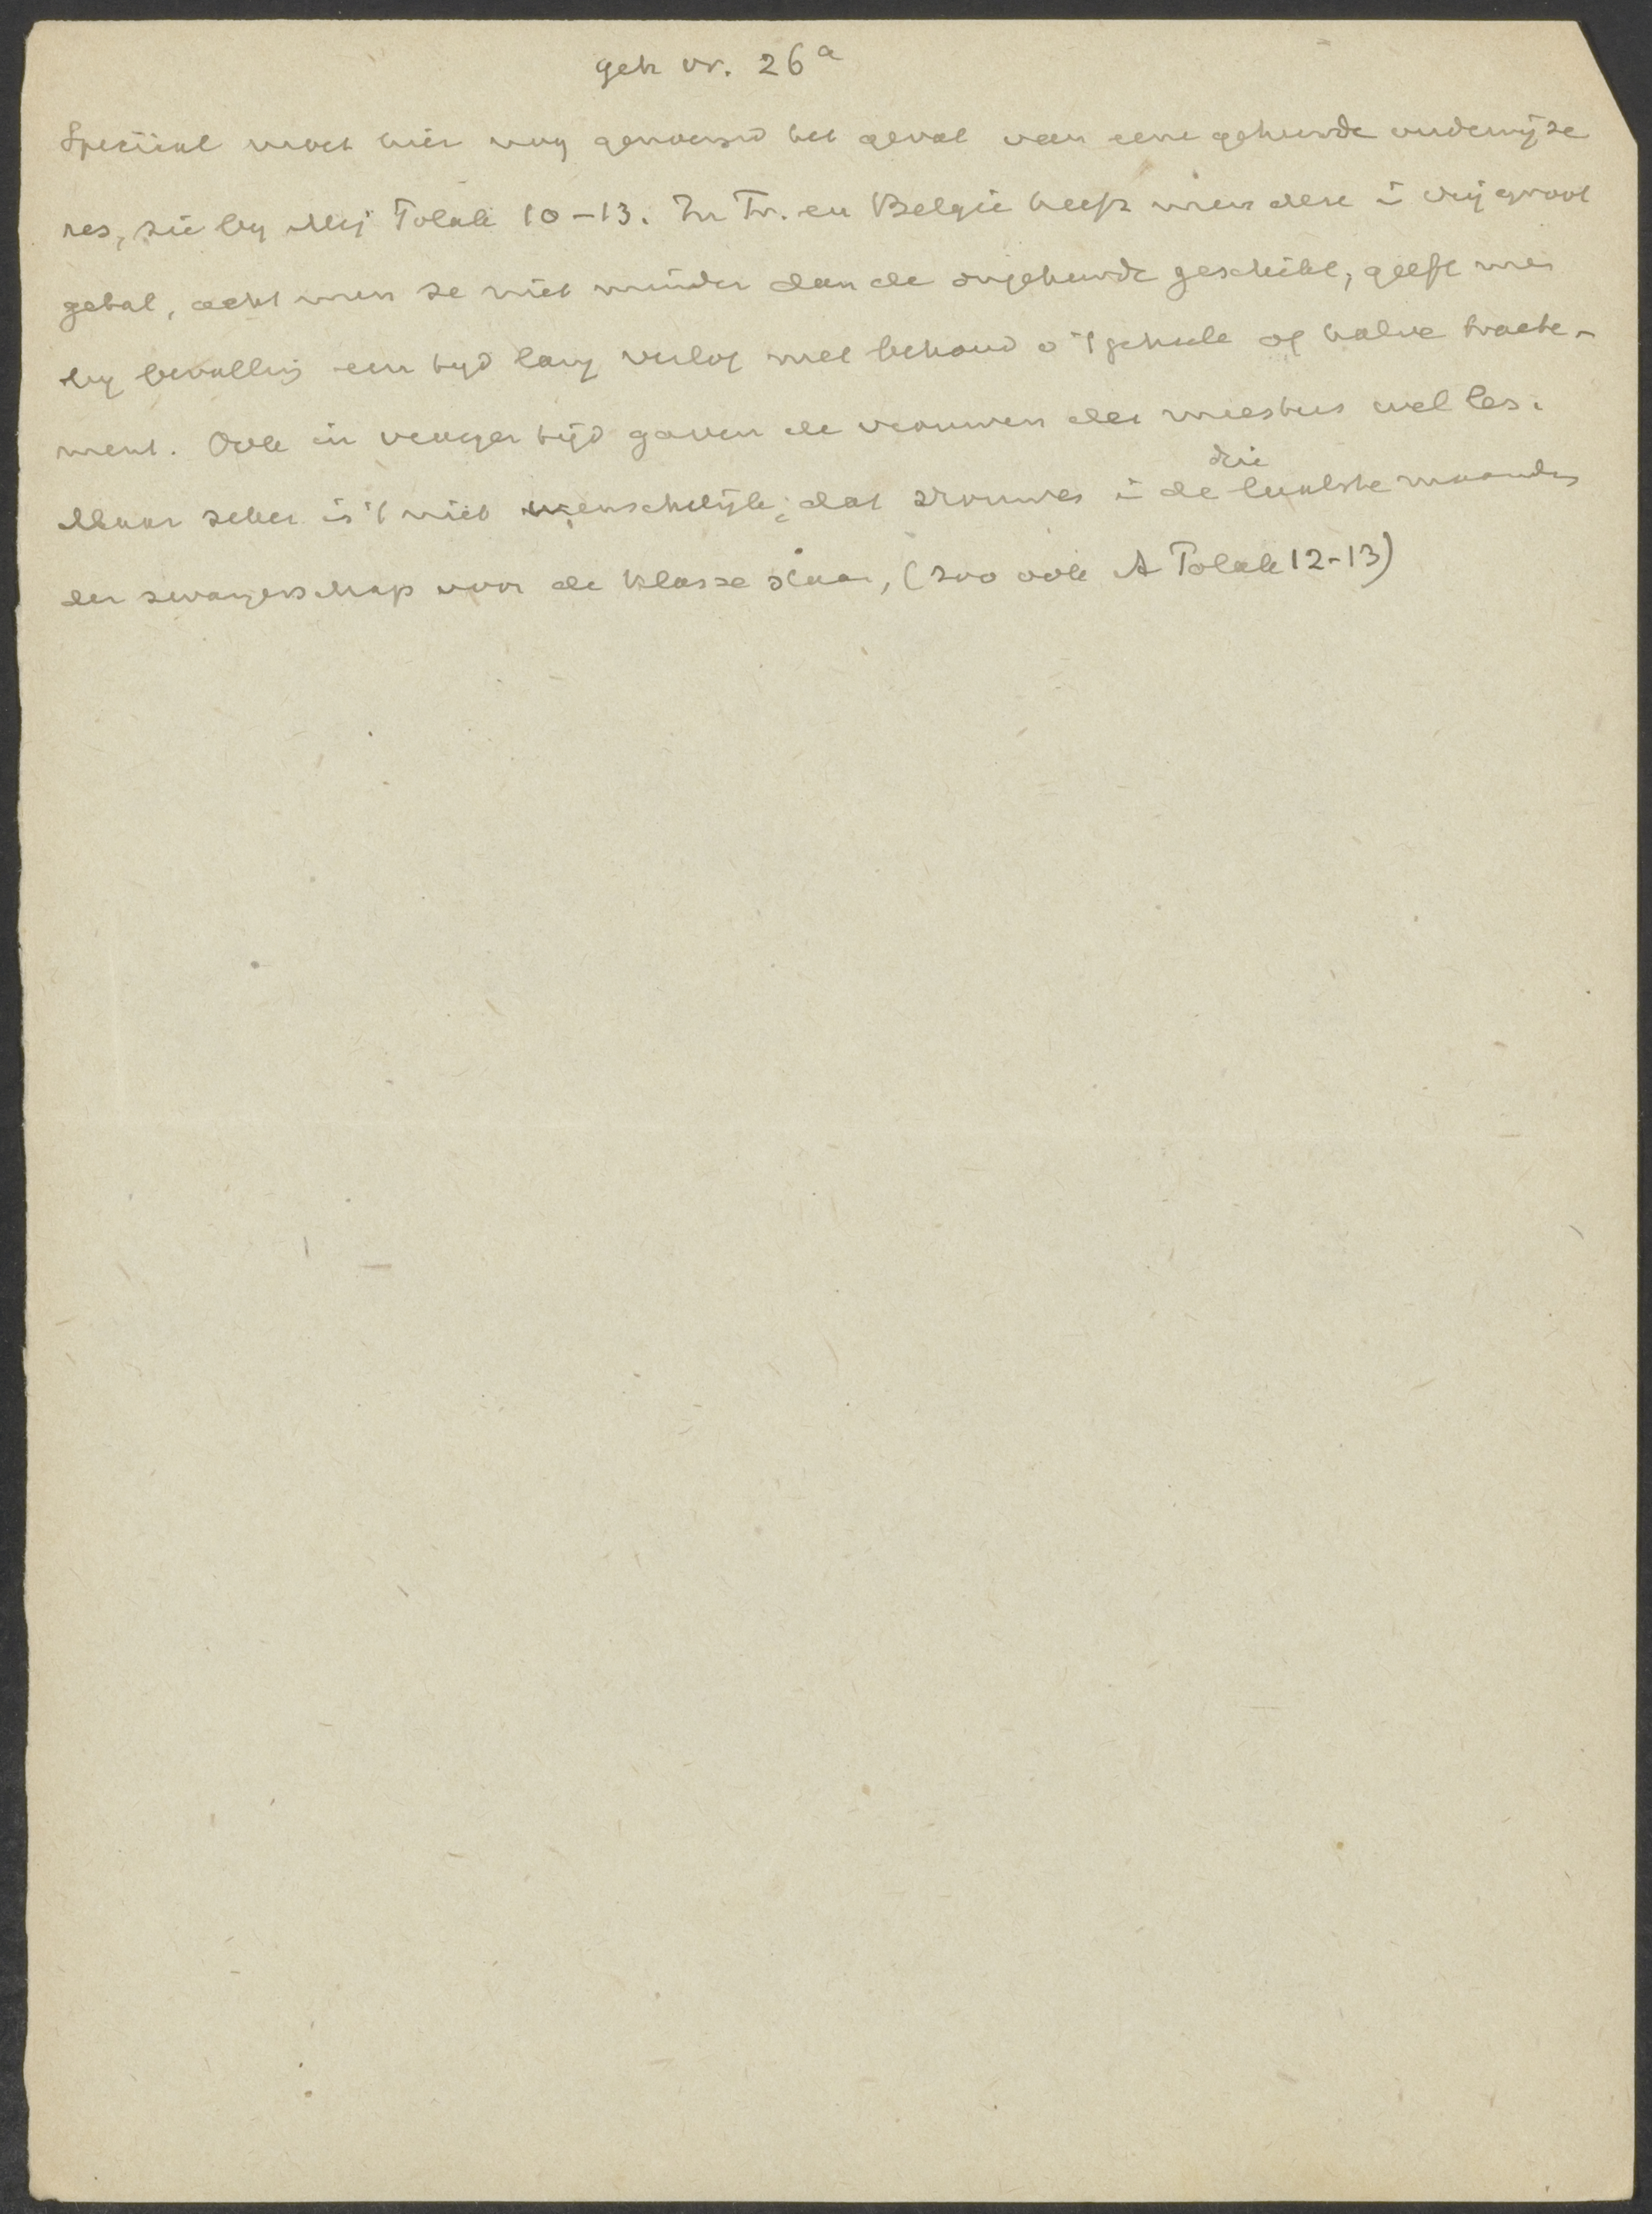 geh vr. 26a
Speciaal moet hier nog genoemd het geval van eene gehuwde onderwijze
res, zie by Mej Polak 10-13. In Fr. en België heeft men deze i vrij groot
getal, acht men ze niet minder dan de ongehuwde geschikt, geeft men
by bevalling een tyd lang verlof met behoud v 't geheele of halve trakte-
ment. Ook in vroeger tijd gaven de vrouwen der meesters wel les.
Maar zeker is 't niet wenschelijk, dat vrouwen i de drie laatste maanden
der zwangerschap voor de klasse staan, (zoo ook A Polak 12-13)